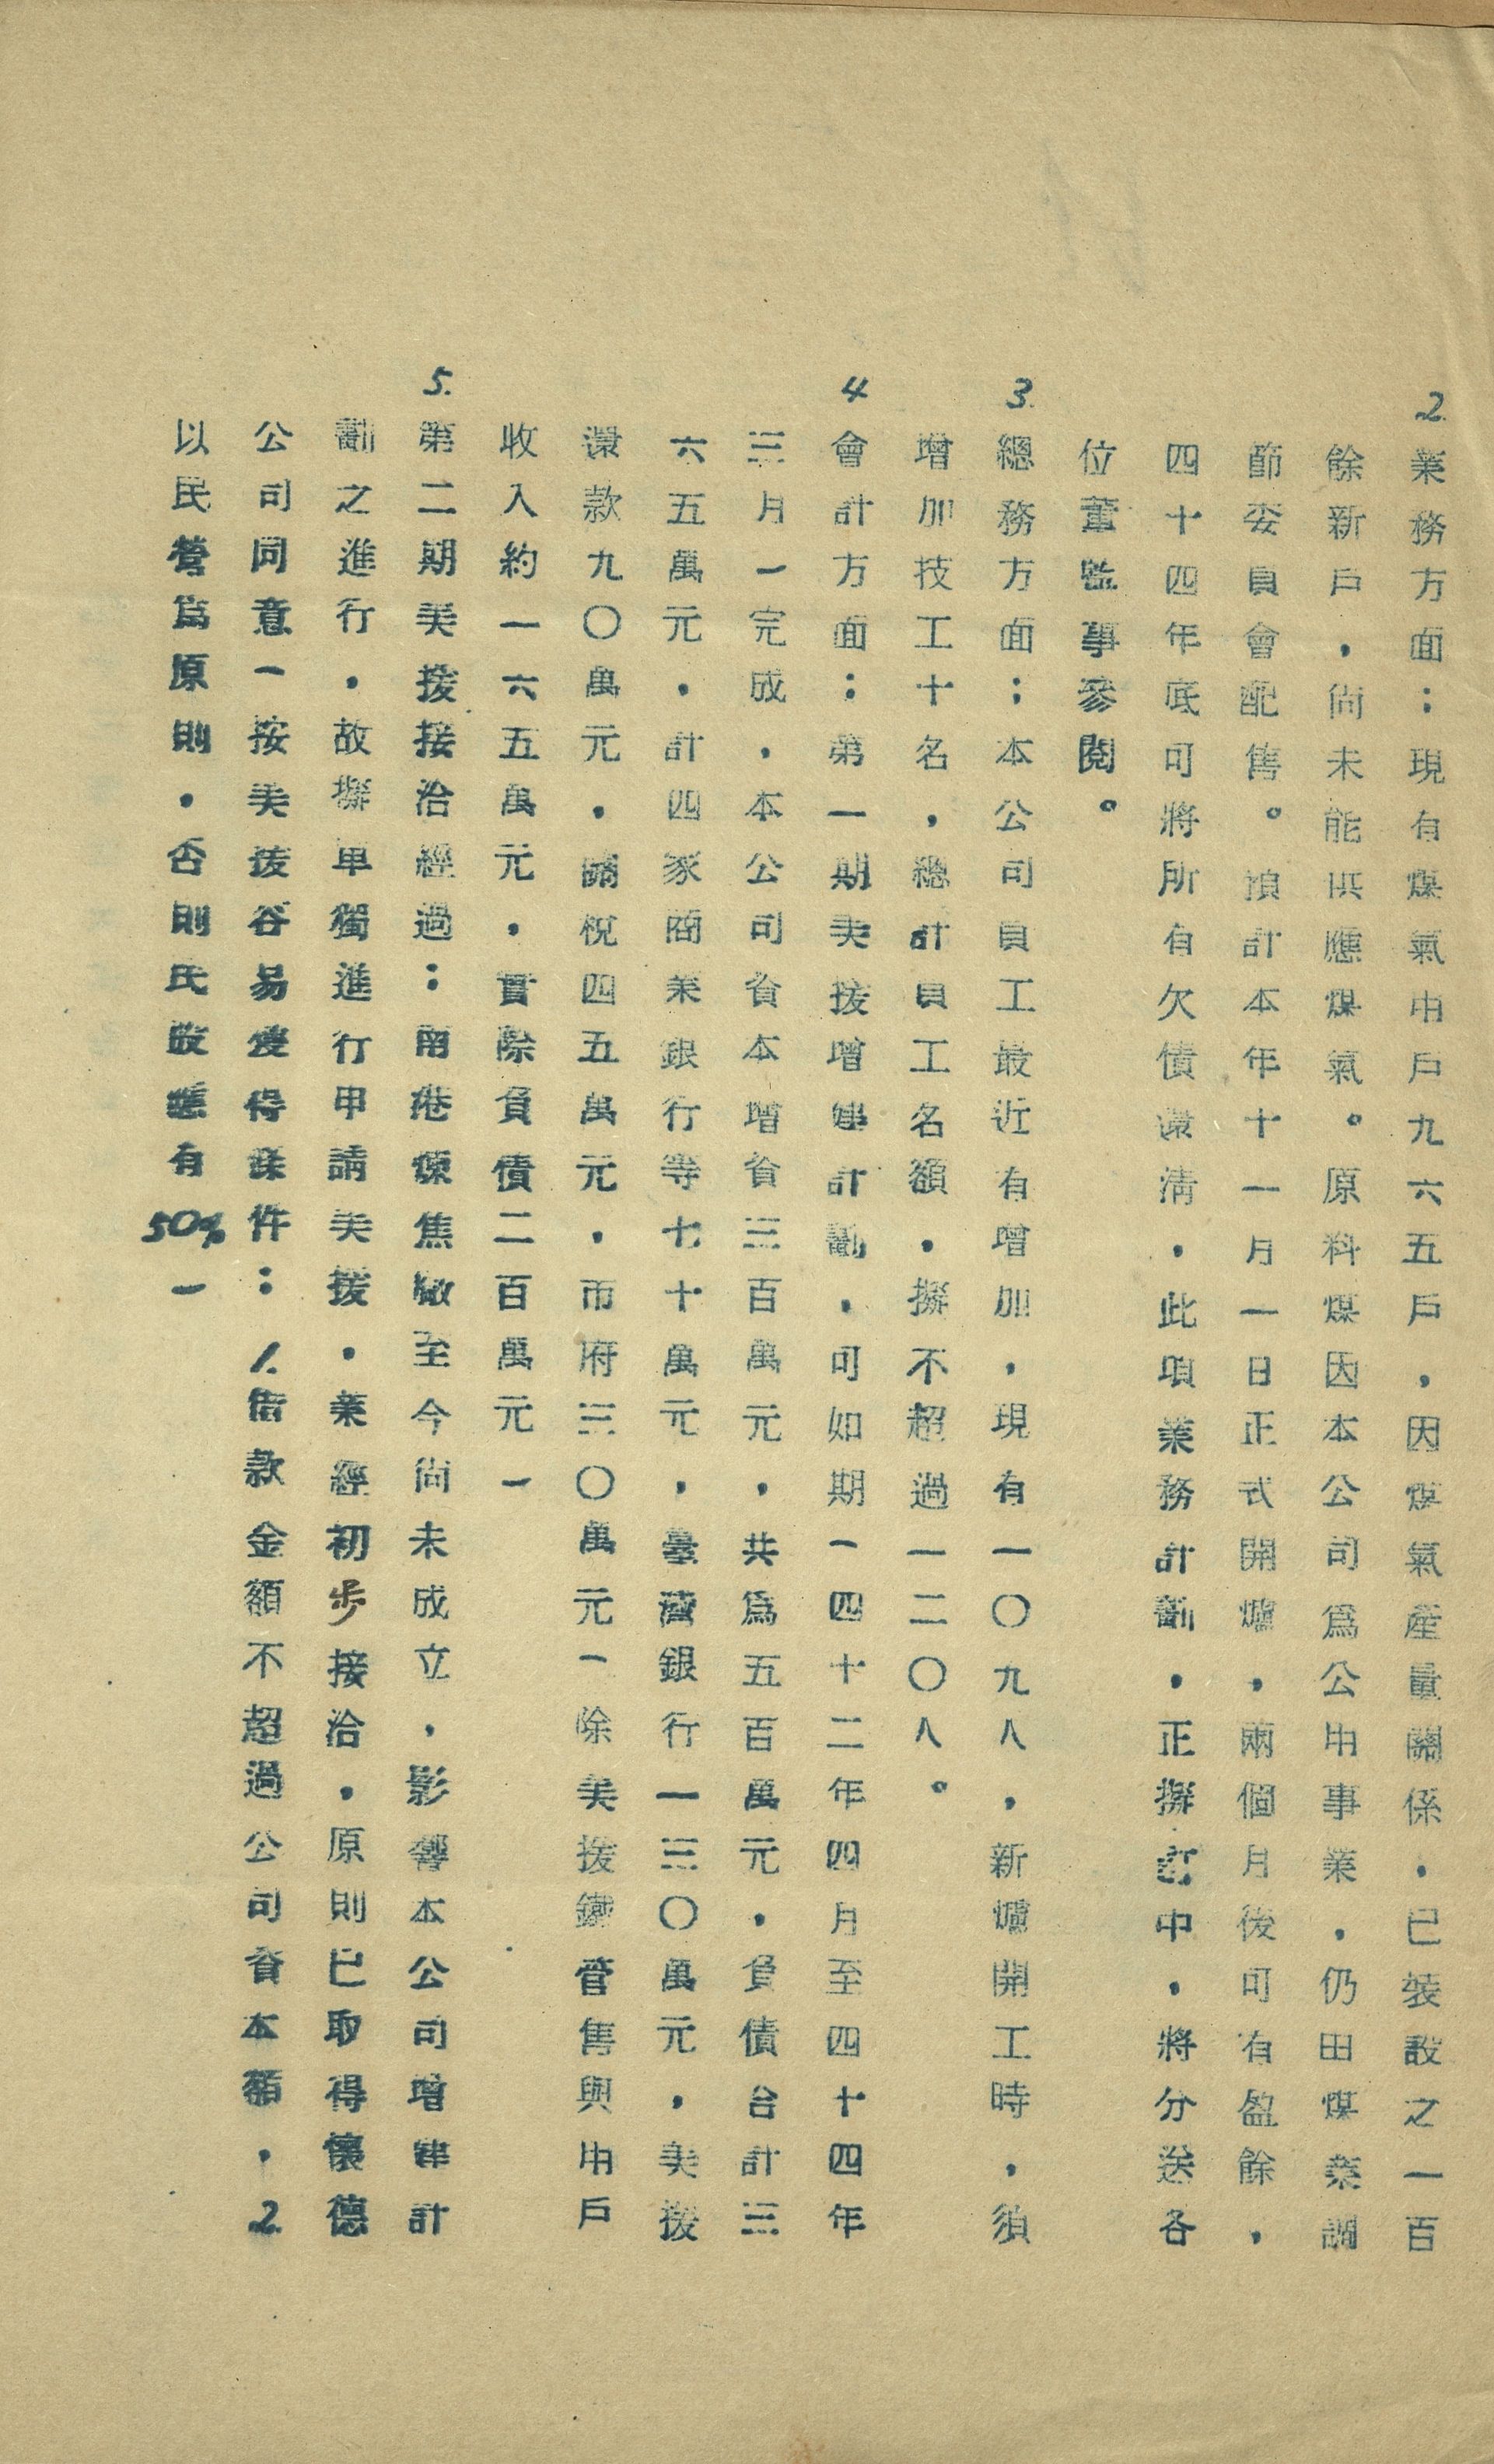 2.業務方面：現有煤氣用戶九六五戶，因煤氣產量關係，已裝設之一百
餘新戶，尚未能供應煤氣。原料煤因本公司爲公用事業，仍由煤業調
節委員會配售。預計本年十一月一日正式開爐，兩個月後可有盈餘，
四十四年底可將所有欠債還清，此項業務計劃，正擬訂中，將分送各
位董監事參閱。
3.總務方面：本公司員工最近有增加，現有一〇九人，新爐開工時，須
增加技工十名，總計員工名額，擬不超過一二〇人。
4會計方面：第一期美援增建計劃，可如期一四十二年四月至四十四年
三月一完成，本公司資本增資三百萬元，共爲五百萬元，負債合計三
六五萬元，計四家商業銀行等七十萬元，臺灣銀行一三〇萬元，美援
還款九〇萬元，關稅四五萬元，市府三〇萬元一除美援鐵管售與用戶
收入約一六五萬元，實際負債二百萬元一
5.第二期美援接洽經過：南港煉焦廠至今尚未成立，影響本公司增建計
劃之進行，故擬單獨進行申請美援，業經初步接洽，原則已取得懷德
公司同意一按美援容易獲得條件：1.借款金額不超過公司資本額，2.
以民營爲原則，否則民股應有50%一